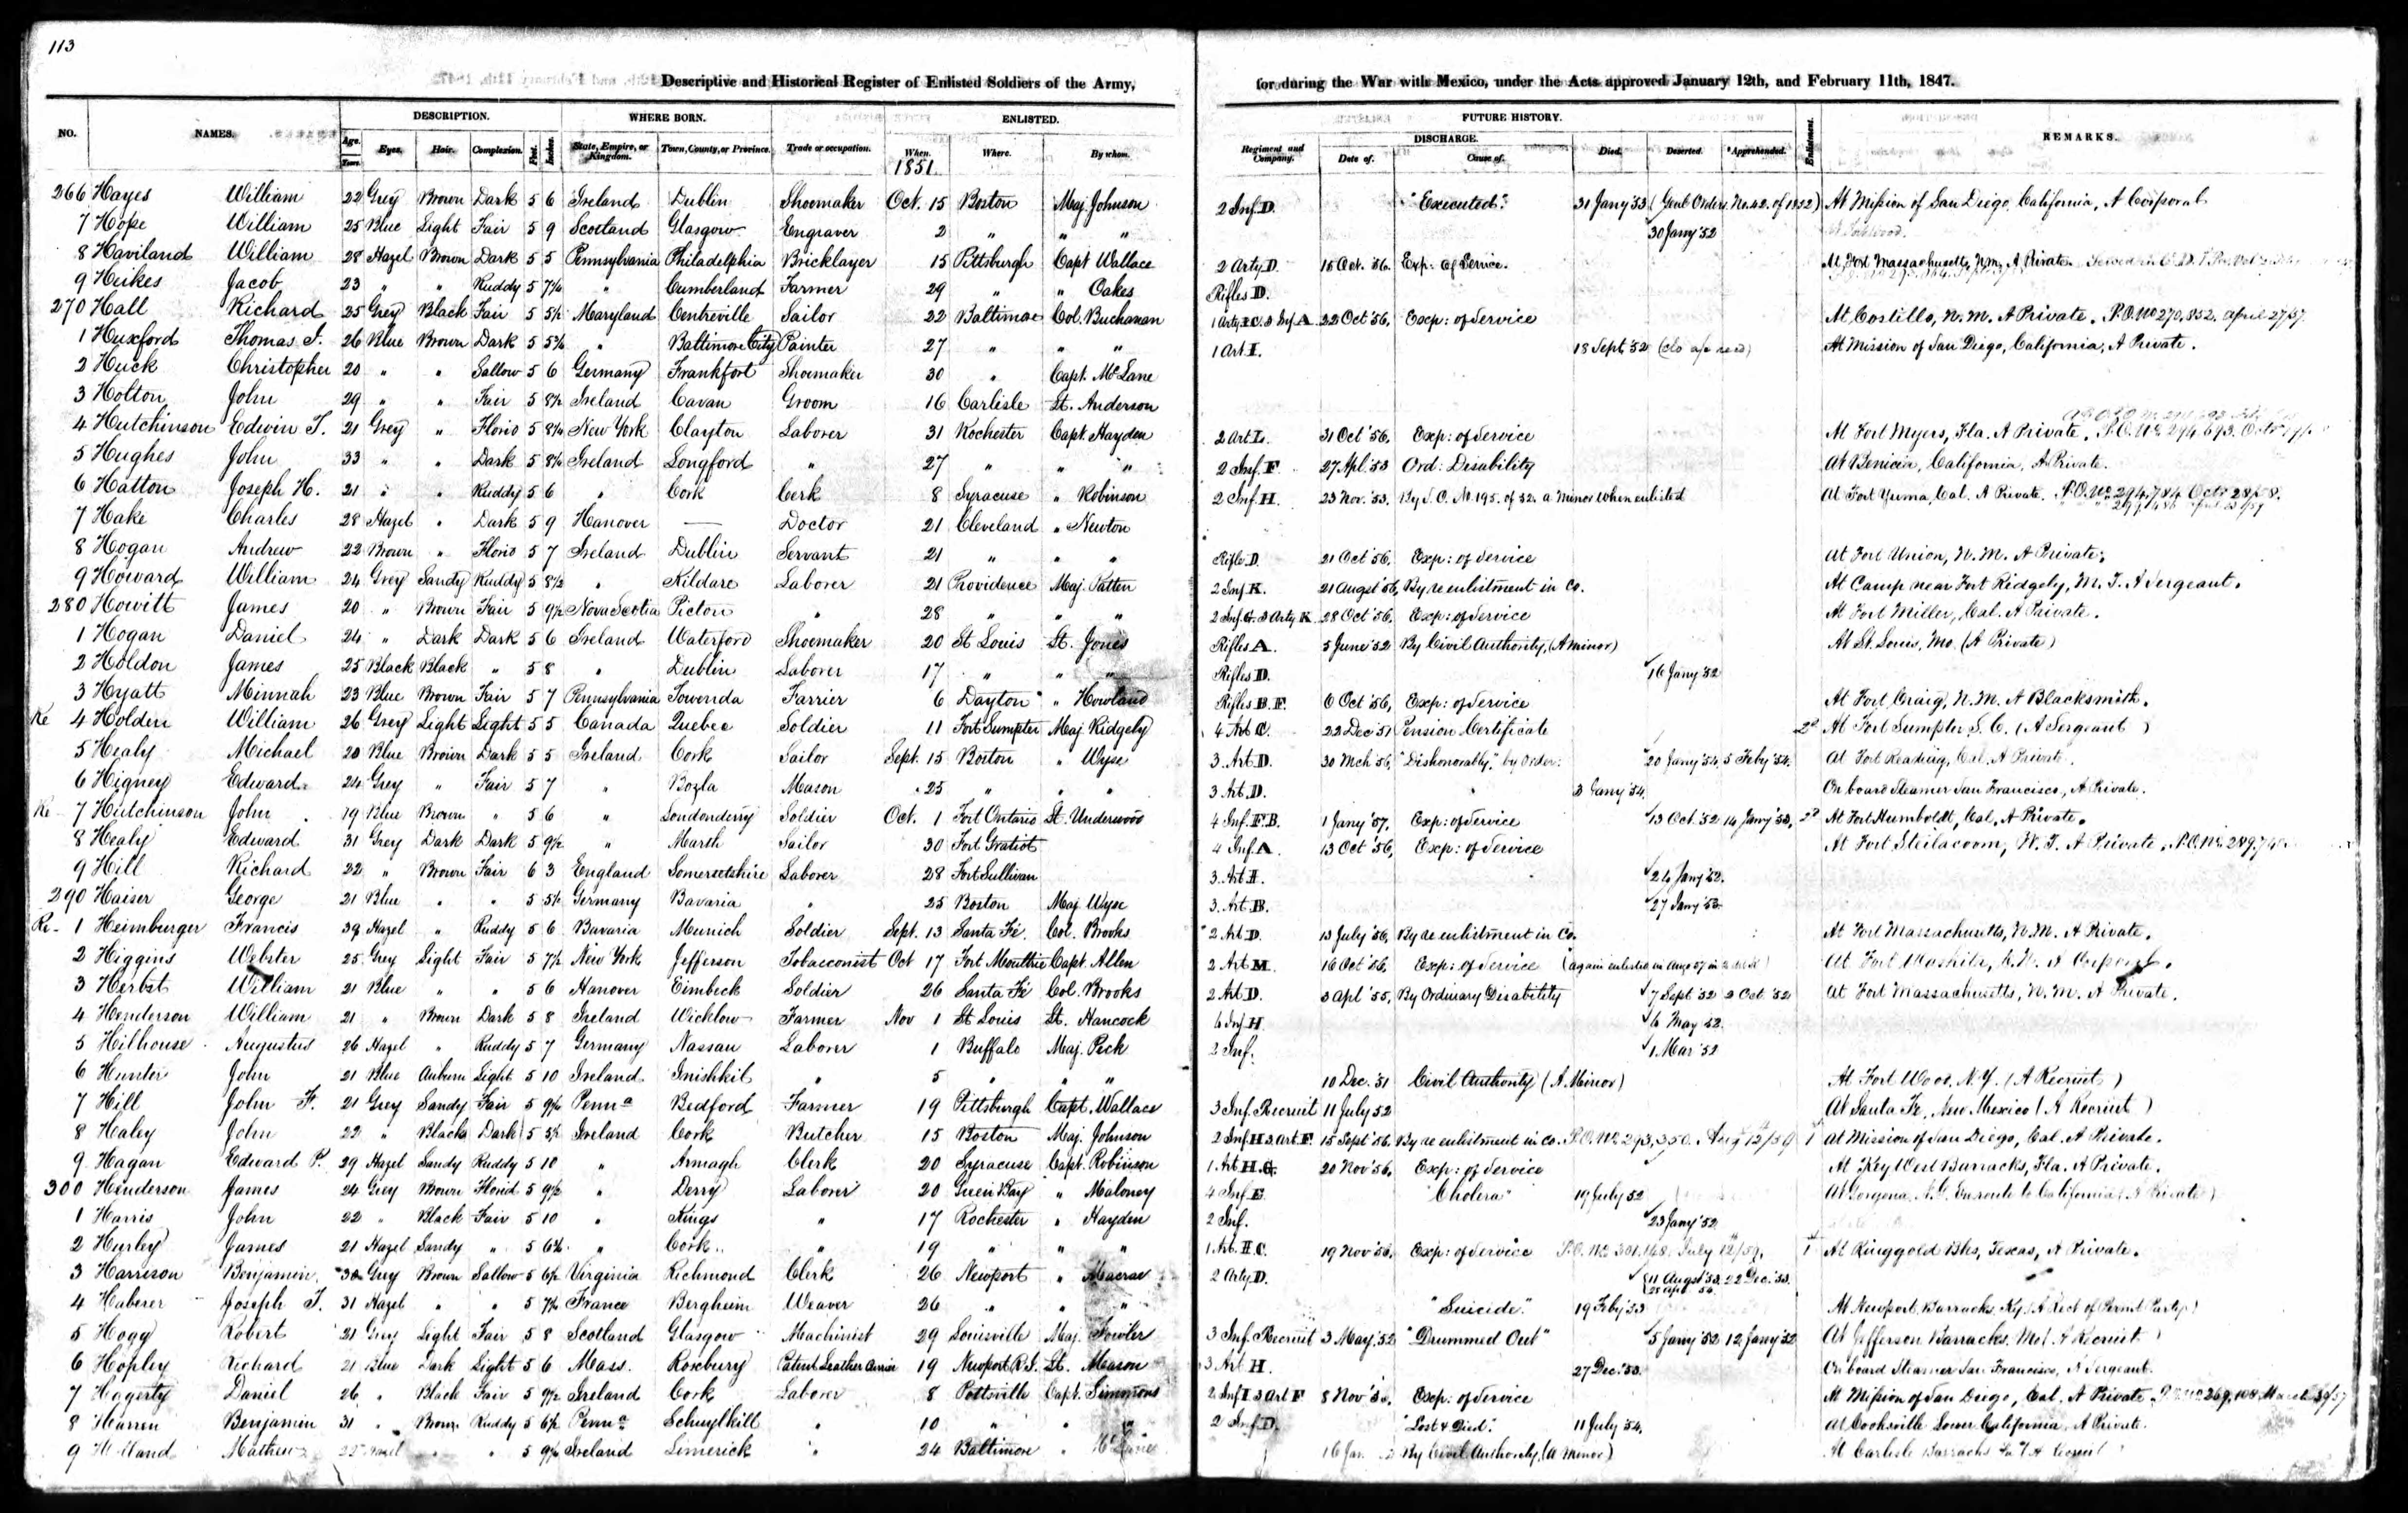 113
Descriptive and Historical Register of Enlisted Soldiers of the Army, for during the War with Mexico, under the Acts approved January 12th, and February 11th, 1847.
NO. NAMES. DESCRIPTION. WHERE BORN. Trade or occupation. ENLISTED. Regiment and Company. FUTURE HISTORY. Enlistment. REMARKS.
Age. Eyes. Hair. Complexion. Feet. Inches. State, Empire, or Kingdom. Town, County, or Province. When. Where. By whom. DISCHARGE. Date of. Cause of. Died. Deserted. Apprehended.
1851
266 Hayes William 22 Grey Brown Dark 5 6 Ireland Dublin Shoemaker Oct. 15 Boston Maj. Johnson 2 Inf. D. "Executed." 31 Jany '53 (Genl Orders No. 42. of 1852) At Mission of San Diego, California, A Corporal
7 Hope William 25 Blue Light Fair 5 9 Scotland Glasgow Engraver 2 " " " 30 Jany '52
8 Haviland William 28 Hazel Brown Dark 5 5 Pennsylvania Philadelphia Bricklayer 15 Pittsburgh Capt Wallace 2 Arty D. 15 Oct. '56. Exp: of Service. At Fort Massachusetts, N.M., A Private
9 Heikes Jacob 23 " " Ruddy 5 7¼ " Cumberland Farmer 29 " " Oakes Rifles D.
270 Hall Richard 25 Grey Black Fair 5 5½ Maryland Centreville Sailor 22 Baltimore Col. Buchanan 22 Oct '56, Exp: of Service At Costillo, N.M. A Private. P.O. No 270,852. April 27/57.
1 Huxford Thomas J. 26 Blue Brown Dark 5 5¾ " Baltimore City Painter 27 " " " 1 Art I. 18 Sept '52 At Mission of San Diego, California, A Private.
2 Huck Christopher 20 " " Sallow 5 6 Germany Frankfort Shoemaker 30 " Capt. McLane
3 Holton John 29 " " Fair 5 8½ Ireland Cavan Groom 16 Carlisle Lt. Anderson
4 Hutchinson Edwin T. 21 Grey " Florid 5 8¼ New York Clayton Laborer 31 Rochester Capt. Hayden 2 Art L. 31 Oct '56. Exp: of Service At Fort Myers, Fla. A Private. P.O. No 294,693.
5 Hughes John 33 " " Dark 5 8¼ Ireland Longford " 27 " " " 2 Inf. F 27 Apl. '53 Ord: Disability At Benicia, California, A Private.
6 Hatton Joseph H. 21 " " Ruddy 5 6 " Cork Clerk 8 Syracuse " Robinson 2 Inf. H. 23 Nov. '53. By S.O. No. 195. of 52. a minor when enlisted At Fort Yuma, Cal. A Private. P.O. No 294,784 Octr 28/58.
7 Hake Charles 28 Hazel " Dark 5 9 Hanover — Doctor 21 Cleveland " Newton
8 Hogan Andrew 22 Brown " Florid 5 7 Ireland Dublin Servant 21 " " " Rifle D. 21 Oct '56. Exp: of Service At Fort Union, N.M. A Private.
9 Howard William 24 Grey Sandy Ruddy 5 8½ " Kildare Laborer 21 Providence Maj. Patten 2 Inf K. 21 Augst '56, By re enlistment in Co. At Camp near Fort Ridgely, M.T. A Sergeant.
280 Howitt James 20 " Brown Fair 5 9½ Nova Scotia Pictou " 28 " " " 2 Inf. G. 3 Arty K 28 Oct '56. Exp: of Service At Fort Miller, Cal. A Private.
1 Hogan Daniel 24 " Dark Dark 5 6 Ireland Waterford Shoemaker 20 St Louis Lt. Jones Rifles A. 5 June '52 By Civil Authority, (A minor) At St. Louis, Mo. (A Private)
2 Holdon James 25 Black Black " 5 8 " Dublin Laborer 17 " " " Rifles D. 16 Jany '52
3 Hyatt Minnah 23 Blue Brown Fair 5 7 Pennsylvania Towanda Farrier 6 Dayton " Howland Rifles B. F. 6 Oct '56, Exp: of Service At Fort Craig, N.M. A Blacksmith.
Re 4 Holden William 26 Grey Light Light 5 5 Canada Quebec Soldier 11 Fort Sumpter Maj. Ridgely 4 Art C. 22 Dec '51 Pension Certificate 2d At Fort Sumpter S.C. (A Sergeant)
5 Healy Michael 20 Blue Brown Dark 5 5 Ireland Cork Sailor Sept. 15 Boston " Wyse 3. Art. D. 30 Mch '56, "Dishonorably," by Order: 20 Jany '54, 5 Feby '54. At Fort Reading, Cal. A Private.
6 Higney Edward 24 Grey " Fair 5 7 " Bozla Mason 25 " " " 3 Art. D. 3 Jany '54. On board Steamer San Francisco, A Private.
Re 7 Hutchinson John 19 Blue Brown " 5 6 " Londonderry Soldier Oct. 1 Fort Ontario Lt. Underwood 4 Inf. F. B. 1 Jany '57, Exp: of Service 13 Oct. '52 14 Jany '53, 2d At Fort Humboldt, Cal. A Private.
8 Healy Edward 31 Grey Dark Dark 5 9½ " Marsh Sailor 30 Fort Gratiot 4 Inf. A. 13 Oct '56, Exp: of Service At Fort Steilacoom, W.T. A Private
9 Hill Richard 22 " Brown Fair 6 3 England Somersetshire Laborer 28 Fort Sullivan 24 Jany '52.
290 Haiser George 21 Blue " " 5 5½ Germany Bavaria " 25 Boston Maj Wyse 3. Art. B. 27 Jany '53.
Re- 1 Heimburger Francis 39 Hazel " Ruddy 5 6 Bavaria Munich Soldier Sept. 13 Santa Fé. Col. Brooks 2 Art. D. 13 July '56, By re enlistment in Co. At Fort Massachusetts, N.M. A Private.
2 Higgins Webster 25 Grey Light Fair 5 7½ New York Jefferson Tobacconist Oct 17 Fort Moultrie Capt. Allen 2 Art M. 16 Oct '56. Exp: of Service At Fort Washita, A Corporal.
3 Herbst William 21 Blue " " 5 6 Hanover Eimbeck Soldier 26 Santa Fé Col. Brooks 2 Art D. 3 Apl '55, By Ordinary Disability 7 Sept '52 2 Oct. '52 At Fort Massachusetts, N.M. A Private.
4 Henderson William 21 " Brown Dark 5 8 Ireland Wicklow Farmer Nov 1 St Louis Lt. Hancock 6 Inf H. 6 May '52.
5 Hilhouse Augustus 26 Hazel " Ruddy 5 7 Germany Nassau Laborer 1 Buffalo Maj. Peck 2 Inf. 1 Mar '52
6 Hunter John 21 Blue Auburn Light 5 10 Ireland Inishkil " 5 " " " 10 Dec. '51 Civil Authority (A Minor) At Fort Wood, N.Y. (A Recruit)
7 Hill John F. 21 Grey Sandy Fair 5 9½ Penna Bedford Farmer 19 Pittsburgh Capt. Wallace 3 Inf. Recruit 11 July 52 At Santa Fe, New Mexico (A Recruit)
8 Healey John 22 " Black Dark 5 5½ Ireland Cork Butcher 15 Boston Maj. Johnson 2 Inf H 3 Art F. 15 Sept '56. By re enlistment in Co. P.O. No 293,350. Aug 12/59 1st At Mission of San Diego, Cal. A Private.
9. Hagan Edward P. 29 Hazel Sandy Ruddy 5 10 " Armagh Clerk 20 Syracuse Capt. Robinson 1. Art H. G. 20 Nov '56, Exp: of Service At Key West Barracks, Fla. A Private.
300 Henderson James 24 Grey Brown Florid 5 9½ " Derry Laborer 20 Green Bay " Maloney 4 Inf. E. "Cholera" 19 July 52 At Gorgona, N.G. Enroute to California (A Private)
1 Harris John 22 " Black Fair 5 10 " Kings " 17 Rochester " Hayden 2 Inf. 23 Jany '52
2 Hurley James 21 Hazel Sandy " 5 6¼ " Cork " 19 " " " 19 Nov '56. Exp: of Service P.O. No 301,148. July 12/59, 1st At Ringgold Bks, Texas, A Private.
3 Harrison Benjamin 30 Grey Brown Sallow 5 6½ Virginia Richmond Clerk 26 Newport " Macrae 2 Arty D. 11 Augst '53. 22 Dec. '53.
4 Haberer Joseph T. 31 Hazel " " 5 7¼ France Bergheim Weaver 26 " " " "Suicide." 19 Feby '53 At Newport Barracks, Ky. (A Rect of Permt Party)
5 Hogg Robert 21 Grey Light Fair 5 8 Scotland Glasgow Machinist 29 Louisville Maj. Fowler 3 Inf. Recruit 3 May. '52 "Drummed Out" 5 Jany '52 12 Jany '52 At Jefferson Barracks. Mo. (A Recruit)
6 Hopley Richard 21 Blue Dark Light 5 6 Mass. Roxbury Patent Leather Currier 19 Newport R.I. Lt. Mason 3 Art H. 27 Dec. '53. On board Steamer San Francisco, A Sergeant.
7 Hagerty Daniel 26 " Black Fair 5 9½ Ireland Cork Laborer 8 Pottsville Capt. Simmons 2 Inf I 3 Art F 8 Nov '56. Exp: of Service At Mission of San Diego, Cal. A Private
8 Harrin Benjamin 31 " Brown Ruddy 5 6½ Penna Schuylkill " 10 " " " 2 Inf. D. "Lost & Died." 11 July '54. At Cooksville Lower California, A Private.
9 Holland Mathew 22 Hazel " " 5 9½ Ireland Limerick " 24 Baltimore " McLane 16 Jan By Civil Authority, (A Minor) At Carlisle Barracks Pa (A Recruit